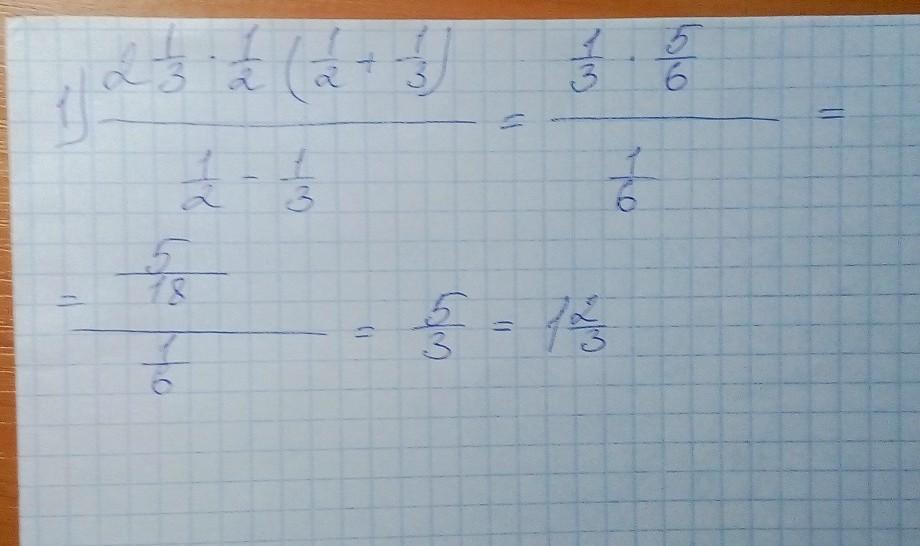 1) (2 1/3 · 1/2 (1/2 + 1/3)) / (1/2 - 1/3) = (1/3 · 5/6) / (1/6) =
= (5/18) / (1/6) = 5/3 = 1 2/3